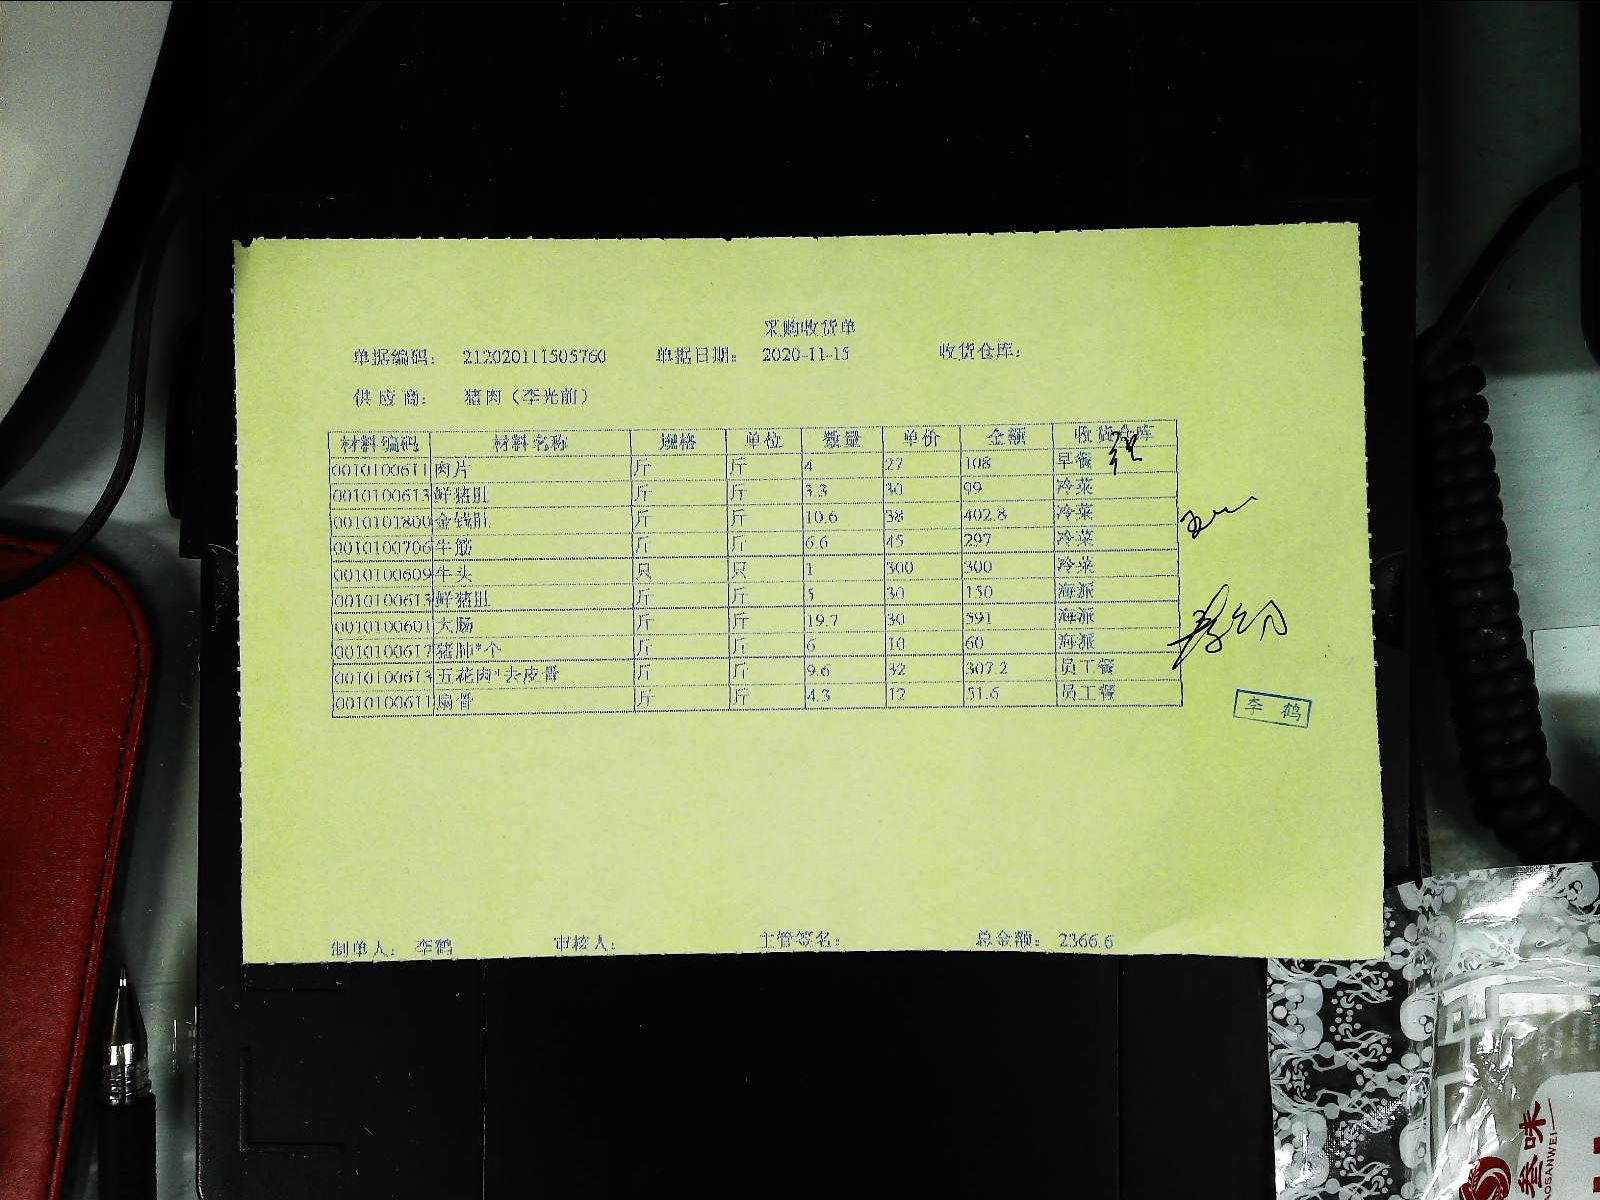 采购收货单
单据编码： 212020111505760 单据日期： 2020-11-15 收货仓库：
供应商： 猪肉（李光前）
材料编码 材料名称 规格 单位 数量 单价 金额 收货仓库
0010100611 肉片 斤 斤 4 27 108 早餐
0010100613 鲜猪肚 斤 斤 3.3 30 99 冷菜
0010101800 金钱肚 斤 斤 10.6 38 402.8 冷菜
0010100706 牛筋 斤 斤 6.6 45 297 冷菜
0010100609 牛头 只 只 1 300 300 冷菜
0010100613 鲜猪肚 斤 斤 5 30 150 海派
0010100601 大肠 斤 斤 19.7 30 591 海派
0010100617 猪肺*个 斤 斤 6 10 60 海派
0010100613 五花肉*去皮骨 斤 斤 9.6 32 307.2 员工餐
0010100611 扇骨 斤 斤 4.3 12 51.6 员工餐
李鹤
制单人： 李鹤 审核人： 主管签名： 总金额： 2366.6
叁味
OSANWEI